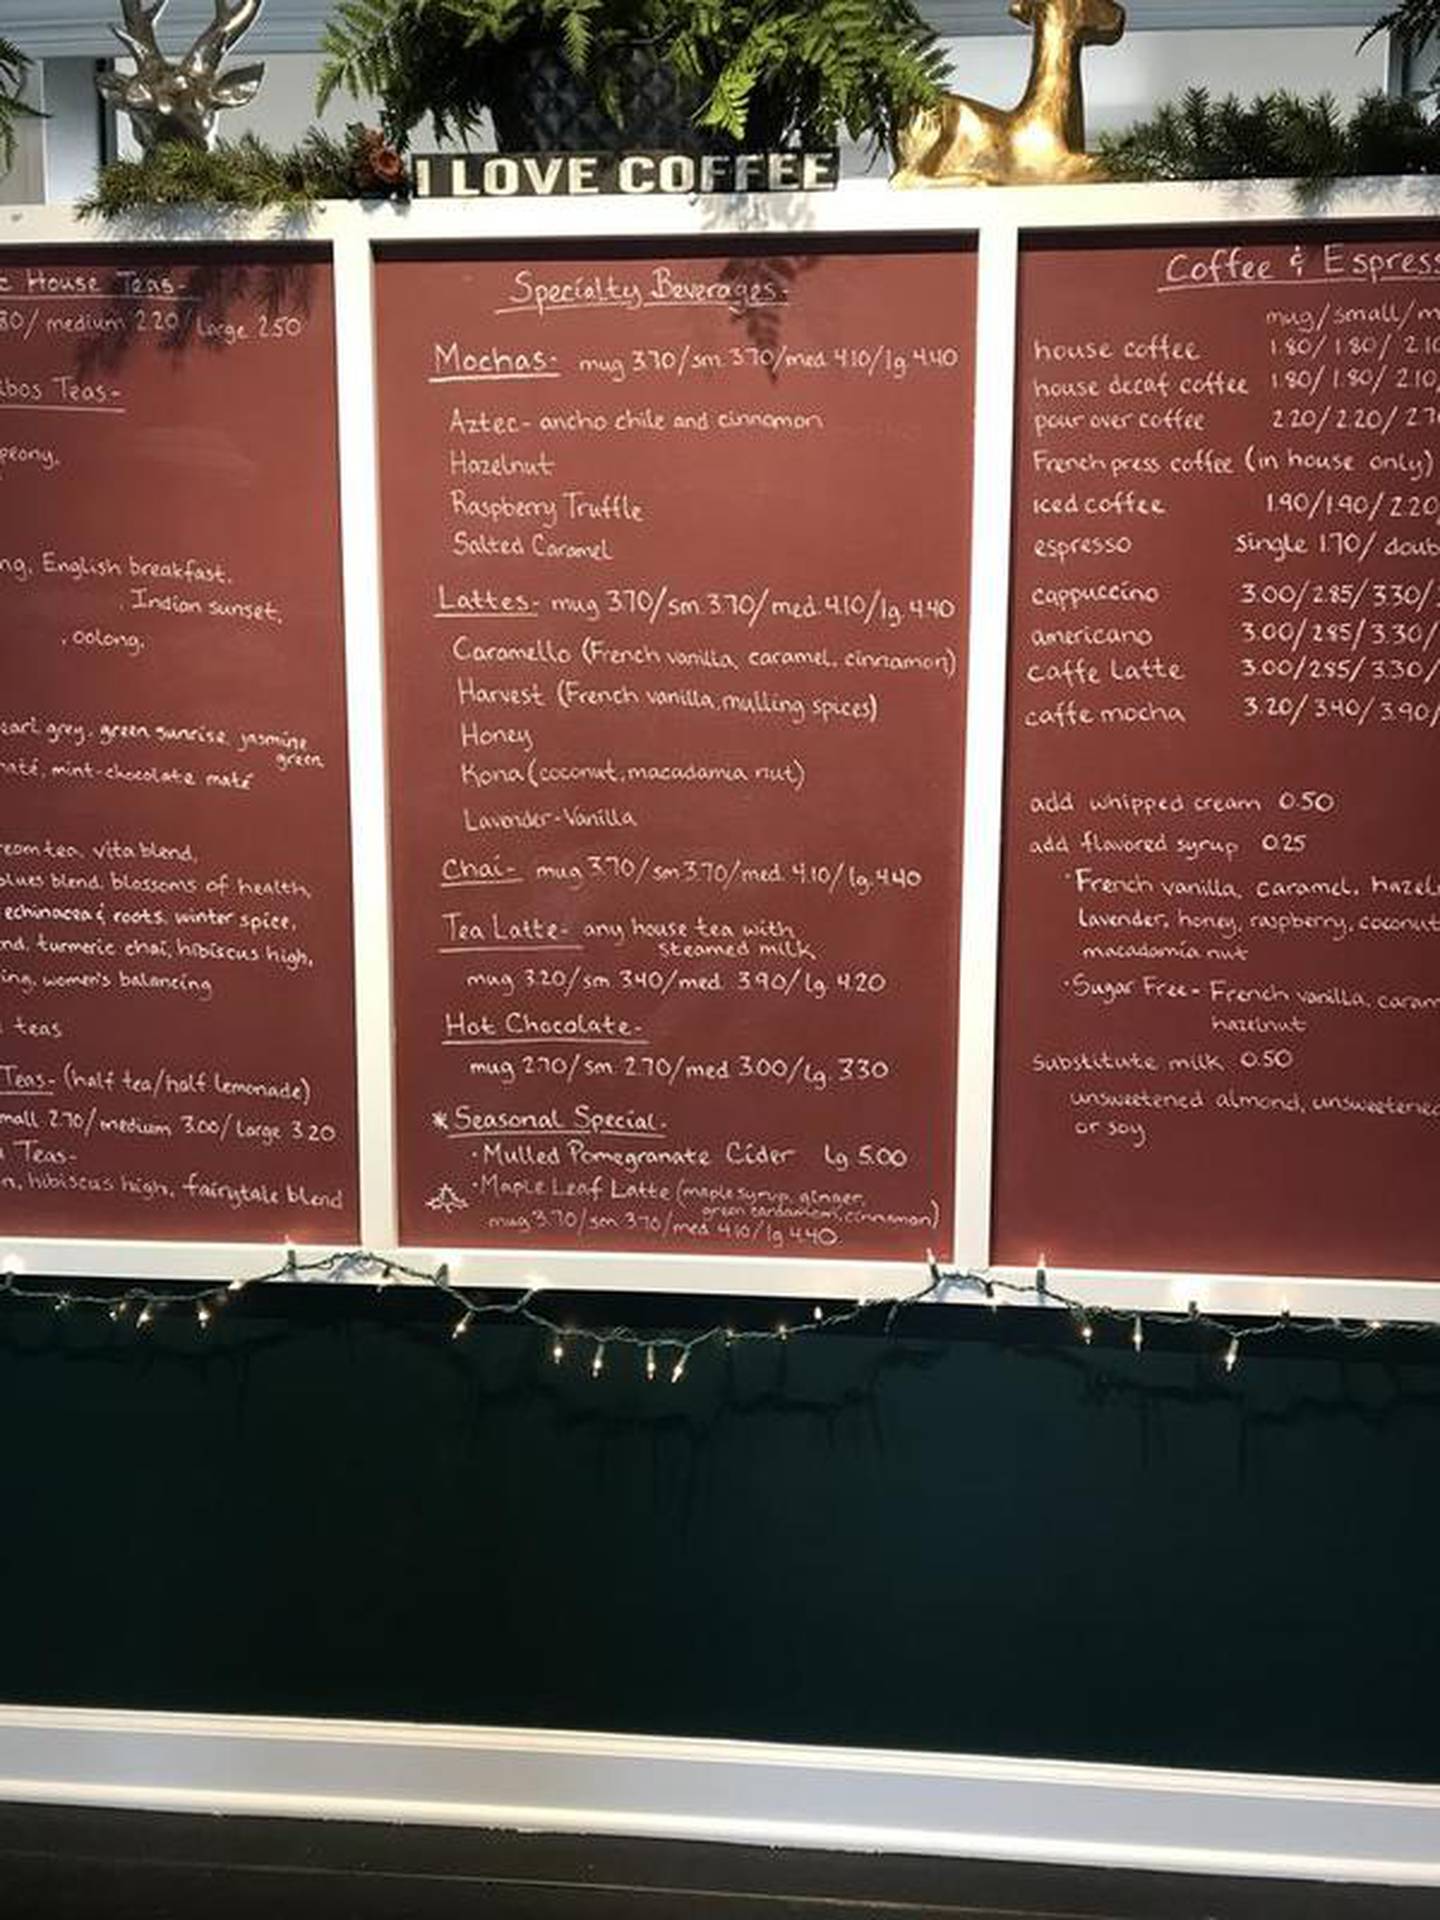 I LOVE COFFEE
House Teas-
80/ medium 2.20/ large 2.50
Teas-
peony,
English breakfast,
Indian sunset,
, oolong,
earl grey, green sunrise, jasmine
green
maté, mint-chocolate maté
tea, vita blend,
blues blend, blossoms of health,
echinacea & roots, winter spice,
turmeric chai, hibiscus high,
women's balancing
teas
Teas- (half tea/half lemonade)
small 2.70/medium 3.00/large 3.20
Teas-
hibiscus high, fairytale blend
Specialty Beverages-
Mochas- mug 3.70/sm 3.70/med 4.10/lg. 4.40
Aztec- ancho chile and cinnamon
Hazelnut
Raspberry Truffle
Salted Caramel
Lattes- mug 3.70/sm 3.70/med. 4.10/lg. 4.40
Caramello (French vanilla, caramel, cinnamon)
Harvest (French vanilla, mulling spices)
Honey
Kona (coconut, macadamia nut)
Lavender-Vanilla
Chai- mug 3.70/sm 3.70/med. 4.10/lg. 4.40
Tea Latte- any house tea with
steamed milk
mug 3.20/sm 3.40/med. 3.90/lg. 4.20
Hot Chocolate-
mug 2.70/sm. 2.70/med 3.00/lg. 3.30
*Seasonal Special-
·Mulled Pomegranate Cider lg 5.00
·Maple Leaf Latte (maple syrup, ginger,
green cardamom, cinnamon)
mug 3.70/sm 3.70/med. 4.10/lg 4.40
Coffee & Espress
mug/small/m
house coffee 1.80/1.80/ 2.10
house decaf coffee 1.80/1.80/ 2.10
pour over coffee 2.20/2.20/ 2.7
French press coffee (in house only)
iced coffee 1.90/1.90/ 2.20
espresso single 1.70/ doub
cappuccino 3.00/2.85/ 3.30/
americano 3.00/2.85/ 3.30/
caffe Latte 3.00/2.85/ 3.30/
caffe mocha 3.20/ 3.40/ 3.90/
add whipped cream 0.50
add flavored syrup 0.25
·French vanilla, caramel, hazel
lavender, honey, raspberry, coconut
macadamia nut
·Sugar Free- French vanilla, caram
hazelnut
Substitute milk 0.50
unsweetened almond, unsweetened
or soy